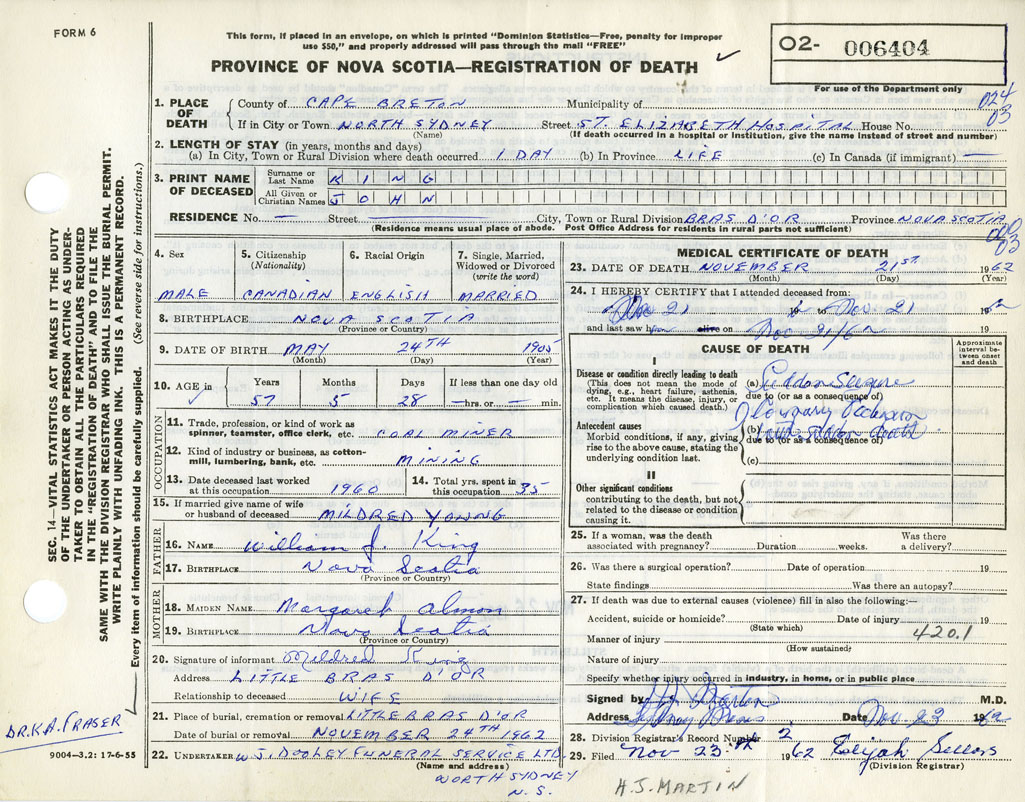 FORM 6
This form, if placed in an envelope, on which is printed "Dominion Statistics—Free, penalty for improper
use $50," and properly addressed will pass through the mail "FREE"
PROVINCE OF NOVA SCOTIA—REGISTRATION OF DEATH
02- 006404
For use of the Department only
024
03
1. PLACE OF DEATH
County of CAPE BRETON Municipality of
If in City or Town NORTH SYDNEY Street ST. ELIZABETH HOSPITAL House No.
(Name) (If death occurred in a hospital or Institution, give the name instead of street and number)
2. LENGTH OF STAY (in years, months and days)
(a) In City, Town or Rural Division where death occurred 1 DAY (b) In Province LIFE (c) In Canada (if immigrant) —
3. PRINT NAME OF DECEASED
Surname or Last Name KING
All Given or Christian Names JOHN
RESIDENCE No. — Street — City, Town or Rural Division BRAS D'OR Province NOVA SCOTIA
(Residence means usual place of abode. Post Office Address for residents in rural parts not sufficient)
000
03
4. Sex 5. Citizenship (Nationality) 6. Racial Origin 7. Single, Married, Widowed or Divorced (write the word)
MALE CANADIAN ENGLISH MARRIED
8. BIRTHPLACE NOVA SCOTIA
(Province or Country)
9. DATE OF BIRTH MAY 24TH 1905
(Month) (Day) (Year)
10. AGE in Years Months Days If less than one day old
57 5 28 — hrs. or — min.
OCCUPATION
11. Trade, profession, or kind of work as
spinner, teamster, office clerk, etc. COAL MINER
12. Kind of industry or business, as cotton-
mill, lumbering, bank, etc. MINING
13. Date deceased last worked at this occupation 1960 14. Total yrs. spent in this occupation 35
15. If married give name of wife
or husband of deceased MILDRED YOUNG
FATHER
16. NAME William J. King
17. BIRTHPLACE Nova Scotia
(Province or Country)
MOTHER
18. MAIDEN NAME Margaret Almon
19. BIRTHPLACE Nova Scotia
(Province or Country)
20. Signature of informant Mildred King
Address LITTLE BRAS D'OR
Relationship to deceased WIFE
21. Place of burial, cremation or removal LITTLE BRAS D'OR
Date of burial or removal NOVEMBER 24TH 1962
22. UNDERTAKER W.J. DOOLEY FUNERAL SERVICE LTD
(Name and address)
NORTH SYDNEY
N.S.
MEDICAL CERTIFICATE OF DEATH
23. DATE OF DEATH NOVEMBER 21ST 1962
(Month) (Day) (Year)
24. I HEREBY CERTIFY that I attended deceased from:
Nov 21 19 to Nov 21 1962
and last saw him alive on Nov 21/62 19
CAUSE OF DEATH
Approximate interval between onset and death
I
Disease or condition directly leading to death
(This does not mean the mode of
dying, e.g., heart failure, asthenia,
etc. It means the disease, injury, or
complication which caused death.)
(a) Sudden Seizure
due to (or as a consequence of)
Antecedent causes
Morbid conditions, if any, giving
rise to the above cause, stating the
underlying condition last.
(b) with sudden death
due to (or as a consequence of)
(c)
II
Other significant conditions
contributing to the death, but not
related to the disease or condition
causing it.
25. If a woman, was the death
associated with pregnancy? Duration weeks. Was there a delivery?
26. Was there a surgical operation? Date of operation 19
State findings Was there an autopsy?
27. If death was due to external causes (violence) fill in also the following:—
Accident, suicide or homicide? Date of injury 19
(State which)
420.1
Manner of injury
(How sustained)
Nature of injury
Specify whether injury occurred in industry, in home, or in public place
Signed by M.D.
Address Sydney Mines Date Nov. 23 1962
28. Division Registrar's Record Number 2
29. Filed Nov 23rd 1962 Elijah Sellers
(Division Registrar)
H.J. MARTIN
SEC. 14—VITAL STATISTICS ACT MAKES IT THE DUTY
OF THE UNDERTAKER OR PERSON ACTING AS UNDER-
TAKER TO OBTAIN ALL THE PARTICULARS REQUIRED
IN THE "REGISTRATION OF DEATH" AND TO FILE THE
SAME WITH THE DIVISION REGISTRAR WHO SHALL ISSUE THE BURIAL PERMIT.
WRITE PLAINLY WITH UNFADING INK. THIS IS A PERMANENT RECORD.
Every item of information should be carefully supplied. (See reverse side for instructions.)
DR. K.A. FRASER
9004—3.2: 17-6-55